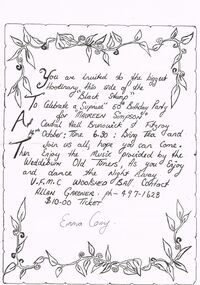 You are invited to the biggest
Hootinany, this side of the
"Black Stump"
To Celebrate a Suprise 50th Birthday Party
for "MAUREEN SIMPSON"
At Central Hall Brunswick St Fitzroy
14th October: Time 6.30: Bring Tea and
Join us all, hope you can Come.
Then Enjoy the Music provided by the
Wedderburn Old Timers, As you Enjoy
and dance the Night Away
V.F.M.C WOOLSHED BALL Contact
ALLAN GARDNER. ph - 497-1628
$10.00 TICKET
Emma